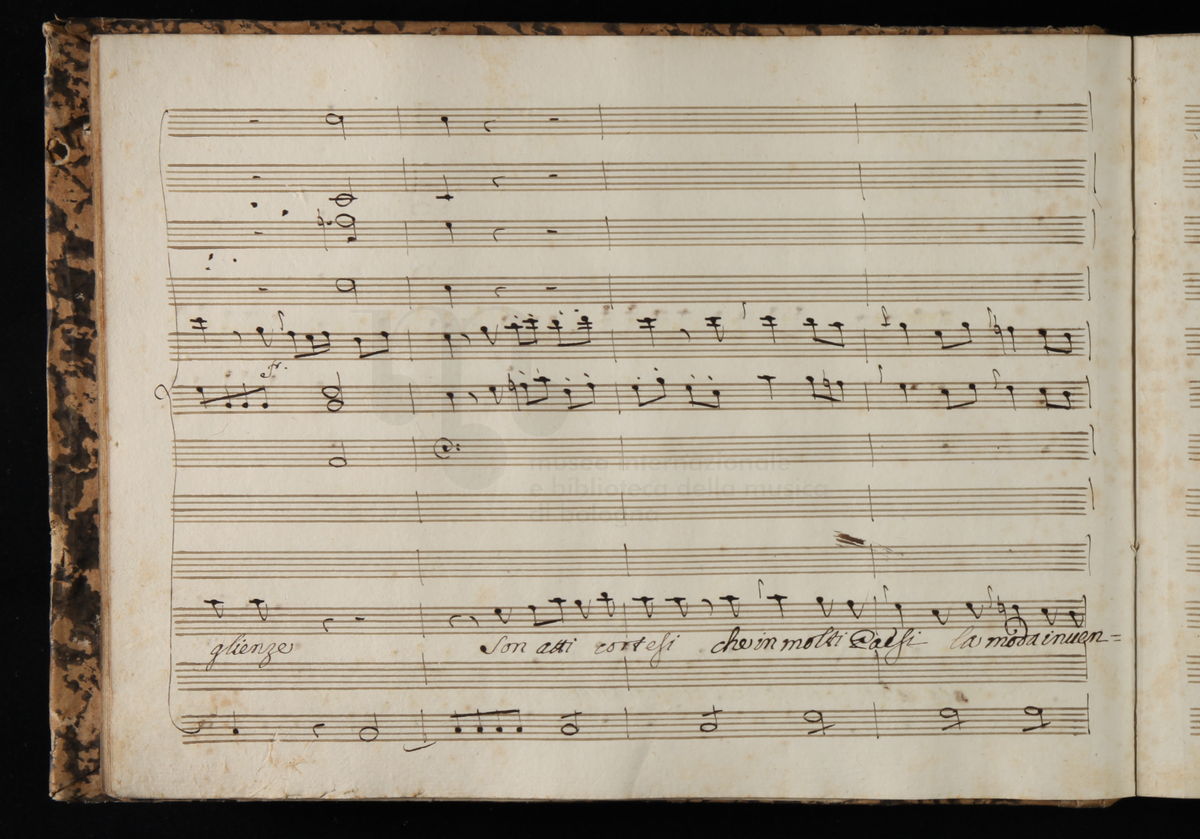 fr.
museo internazionale
e biblioteca della musica
di bologna
glienze Son atti cortesi che in molti Paesi la moda inven=